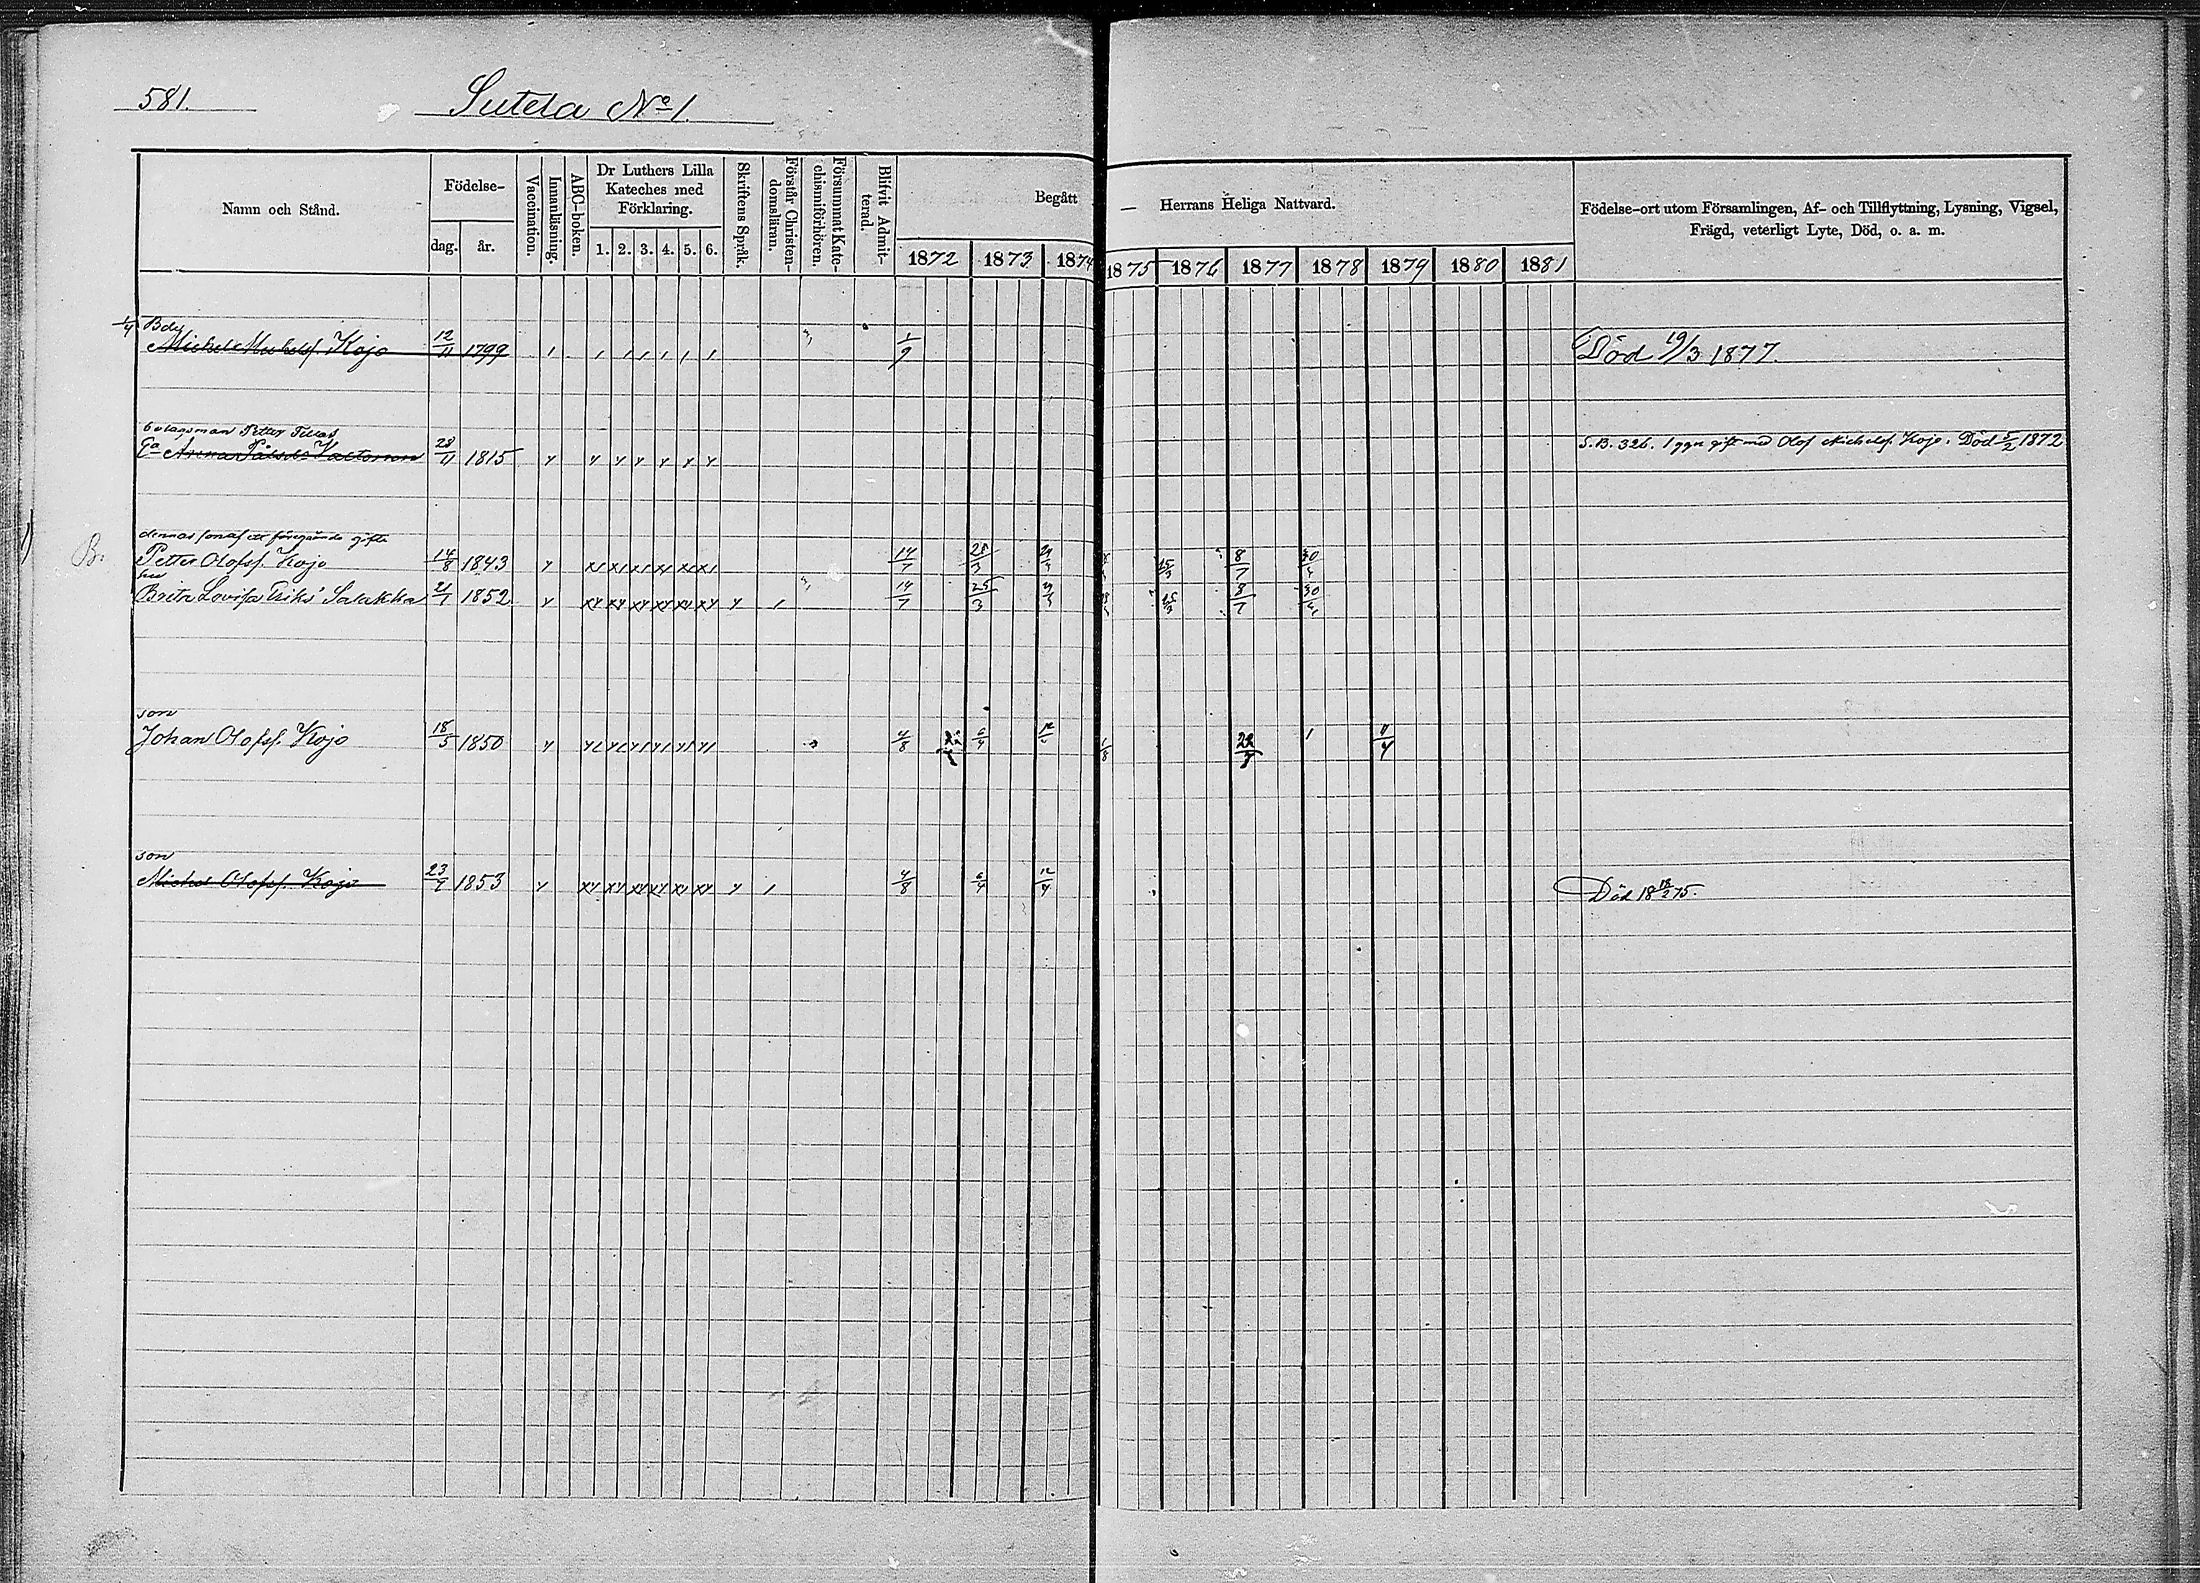 581.
Sutela No 1.
Namn och Stånd.
Födelse-
dag. år.
Vaccination.
Innanläsning.
ABC-boken.
Dr Luthers Lilla
Kateches med
Förklaring.
1. 2. 3. 4. 5. 6.
Skriftens Språk.
Förstår Christen-
domsläran.
Försummat Kate-
chismiförhören.
Blifvit Admit-
terad.
Begått — Herrans Heliga Nattvard.
1872 1873 1874 1875 1876 1877 1878 1879 1880 1881
Födelse-ort utom Församlingen, Af- och Tillflyttning, Lysning, Vigsel,
Frägd, veterligt Lyte, Död, o. a. m.
1/4 Bdy
Michel Michelsf. Kojo 12/11 1799 1/9 Död 19/3 1877.
bolagsman Petter
Anna 28/11 1815 S.B. 326. 1 ggn gift med Olof Michelsf. Kojo. Död 5/2 1872
B. dennas son föregående gifte
Petter Olofsf. Kojo 14/8 1843 14/7 8/7 30/4
hu
Brita Lovisa Eriksd Salakka 21/7 1852 14/7 25/3 8/7 30/4
son
Johan Olofsf. Kojo 18/5 1850 4/8 6/4 1/8 22/7 1 11/4
son
Michel Olofsf. Kojo 23/7 1853 4/8 6/4 12/4 Död 18 18/2 75.